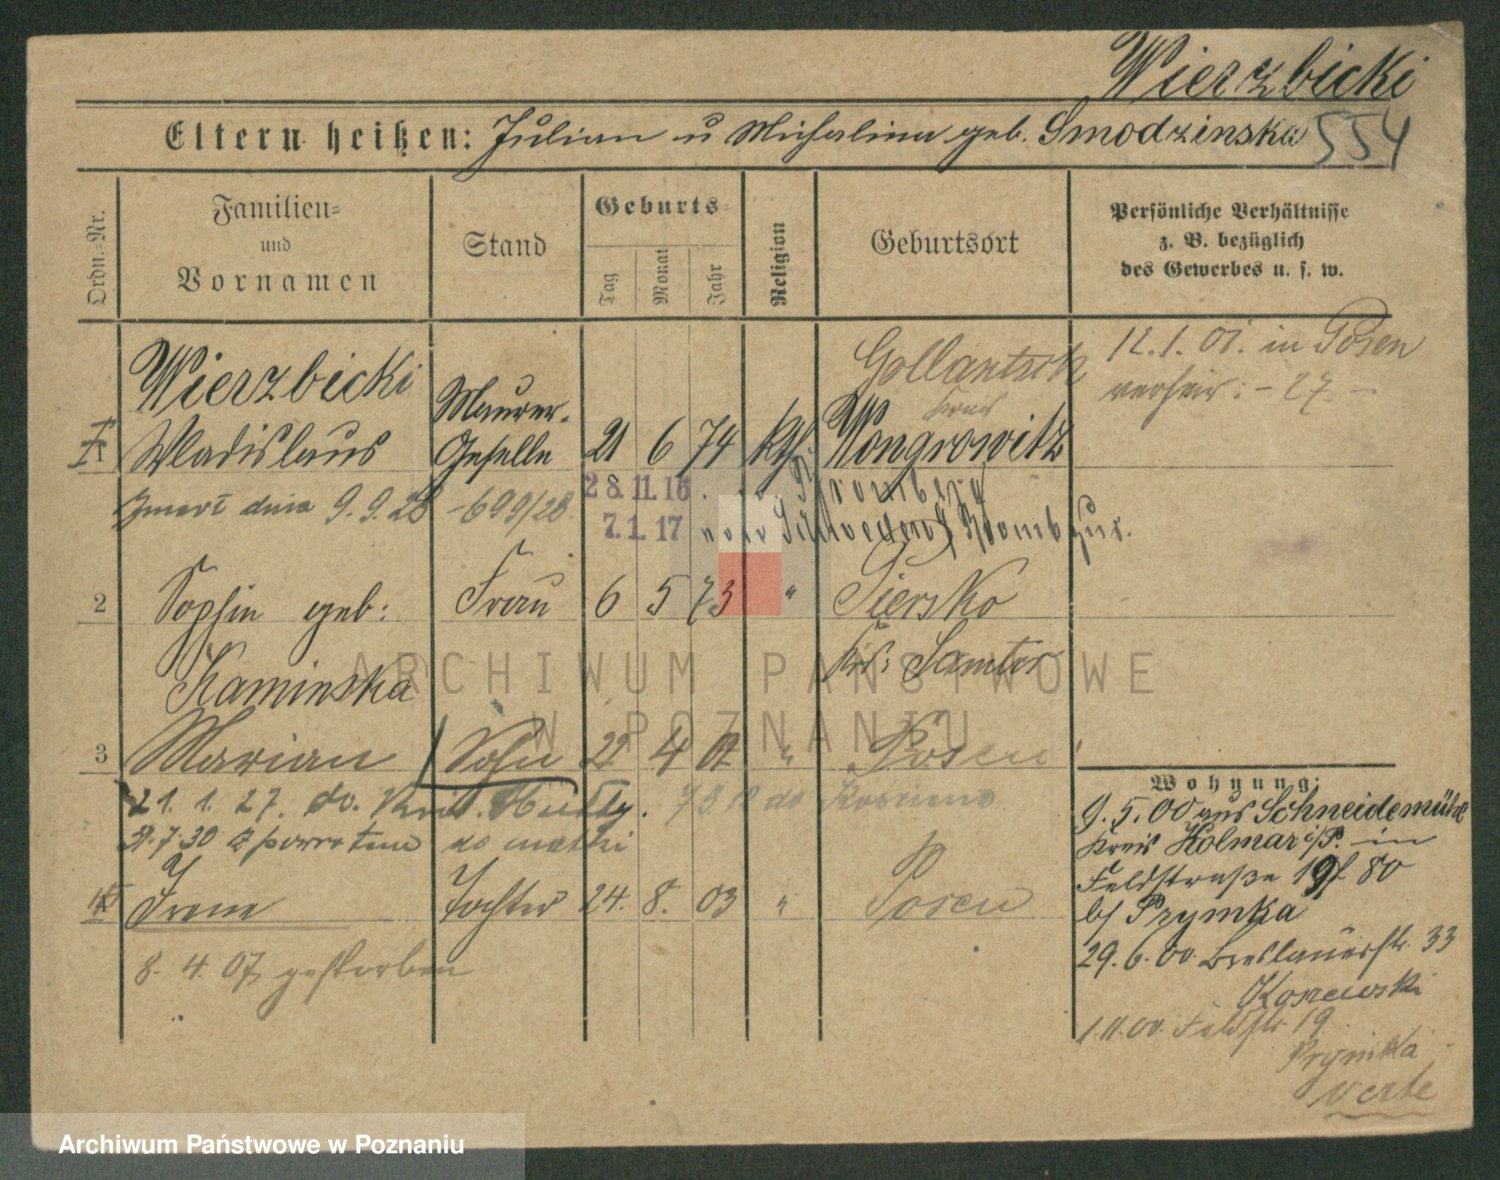 Wierzbicki
Eltern heißen: Julian u Michalina geb. Smodzinska 554
Ordn.-Nr.
Familien-
und
Vornamen
Stand
Geburts-
Tag
Monat
Jahr
Religion
Geburtsort
Persönliche Verhältnisse
z. B. bezüglich
des Gewerbes u. s. w.
Wierzbicki
Wladislaus
Maurer-
Geselle
21 6 74 kth.
Gollantsch
Kreis
Wongrowitz
12.1.01. in Posen
verheir: - 27. -
Zmarł dnia 9.9.28 - 699/28.
28.11.16. n. Bromberg
7.1.17 von Bromberg.
2 Sophie geb: Frau 6 5 73 " Piersko
Kaminska
Krs: Samter
3 Marian Sohn 22 4 02 " Posen
21.1.27. do
27.7.30 z powrotem do matki
Irene Tochter 24. 8. 03 " Posen
8. 4. 07 gestorben
Wohnung:
9.5.00 aus Schneidemühl
Kreis Kolmar i/P. in
Feldstraße 19 80
b/ Prymka
29.6.00. Breslauerstr. 33
1.11.00. Feldstr. 19
Prymka
verte
ARCHIWUM PAŃSTWOWE
W POZNANIU
Archiwum Państwowe w Poznaniu